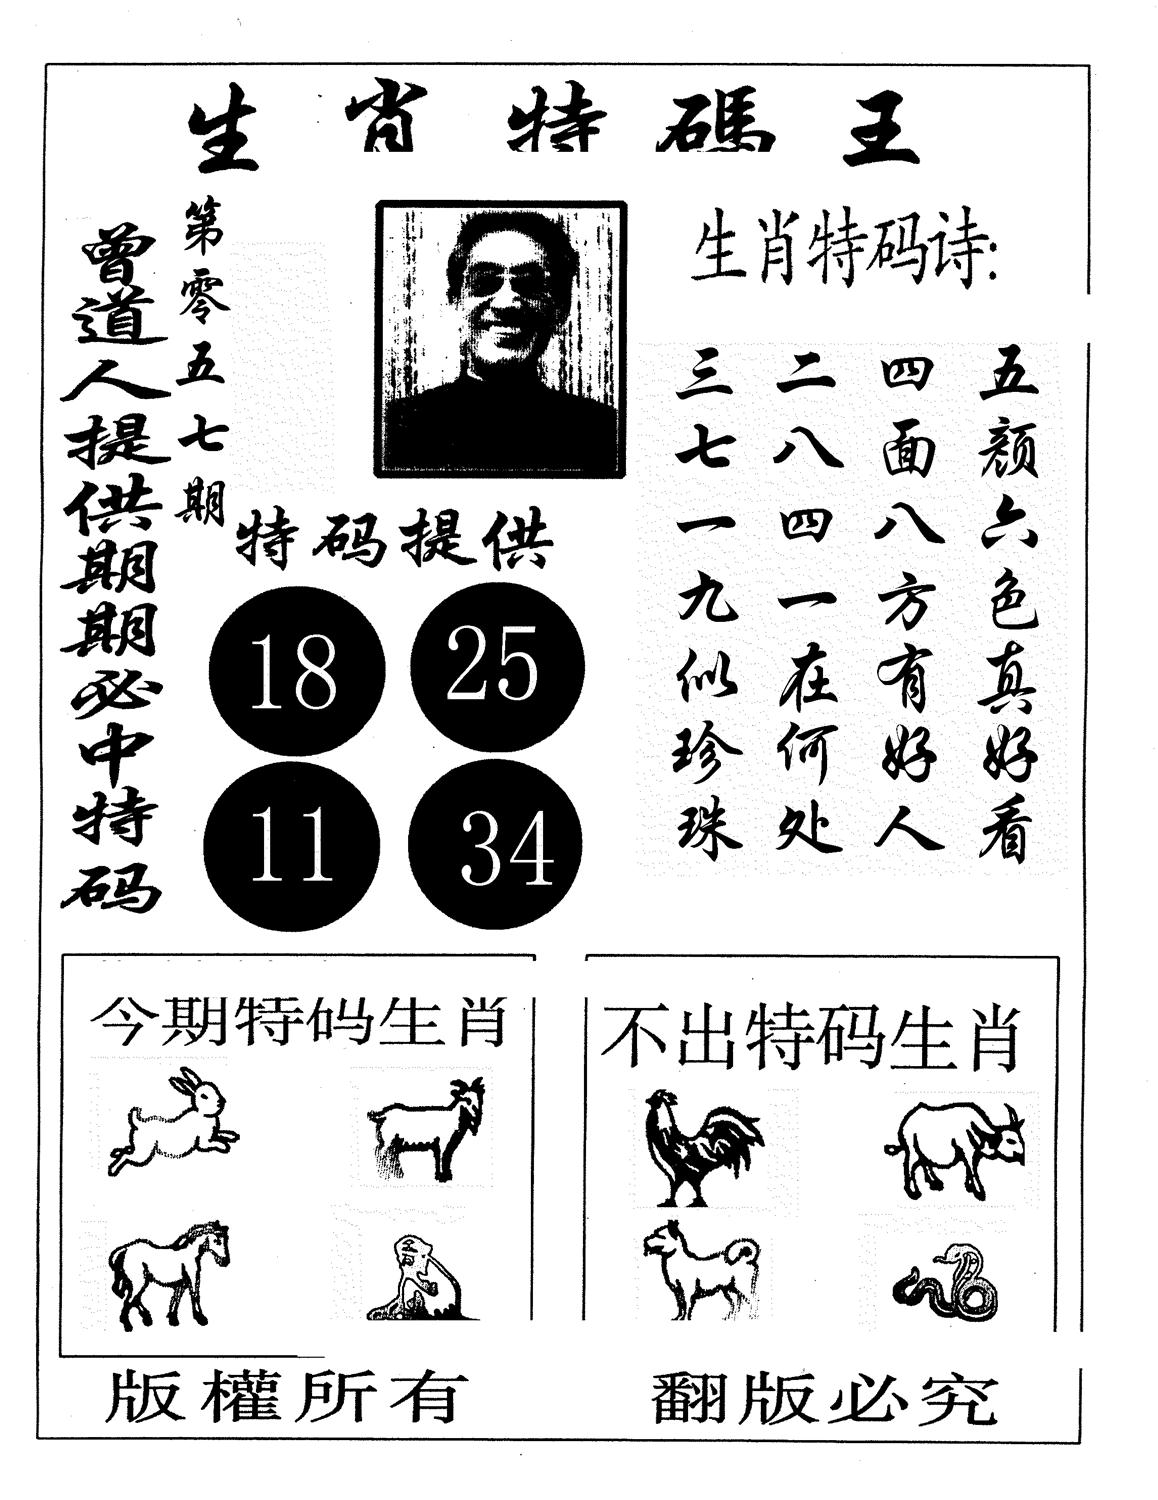 生肖特碼王
第零五七期
曾道人提供期期必中特码
生肖特码诗:
五颜六色真好看
四面八方有好人
二八四一在何处
三七一九似珍珠
特码提供
18 25
11 34
今期特码生肖
不出特码生肖
版權所有
翻版必究